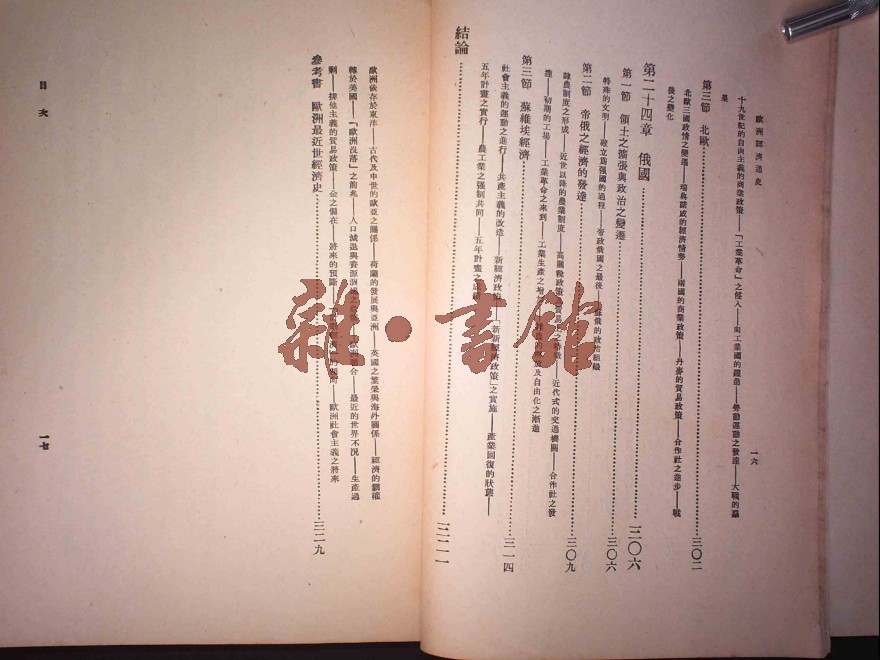 歐洲經濟通史
一六
十九世紀的自由主義的商業政策——「工業革命」之侵入——向工業國的躍進——勞動運動之發達——大戰的
第三節 北歐 三〇二
北歐三國政情之變遷——瑞典挪威的經濟情勢——兩國的商業政策——丹麥的貿易政策——合作社之進步——戰
後之變化
第二十四章 俄國 三〇六
第一節 領土之擴張與政治之變遷 三〇六
特殊的文明——建立爲强國的過程——帝政俄國之最後——蘇俄的政治組織
第二節 帝俄之經濟的發達 三〇九
隸農制度之形成——近世以降的農業制度——高關稅政策——近代式的交通機關——合作社之發
達——初期的工場——工業革命之來到——工業生產之及自由化之漸進
第三節 蘇維埃經濟 三一四
社會主義的運動之進行——共產主義的改造——新經濟政策——「新新經濟政策」之實施——產業回復的狀態——
五年計畫之實行——農工業之强制共同——五年計畫之成績
結論
歐洲依存於東洋——古代及中世的歐亞之關係——荷蘭的發展與亞洲——英國之繁榮與海外關係——經濟的霸權
轉於美國——「歐洲沒落」之前兆——人口減退與資源——最近的世界不況——生產過
剩——排他主義的貿易政策——金之偏在——將來的預斷——歐洲社會主義之將來
參考書 歐洲最近世經濟史 三二九
目次
一七
雜·書館